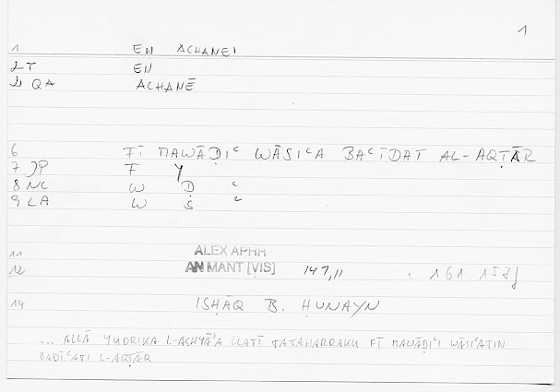 1
1 EN ACHANEI
2 T EN
2 QA ACHANĒ
6 FĪ MAWĀḌIᶜ WĀSIᶜA BAᶜĪDAT AL-AQṬĀR
7 JP F Y
8 NC W Ḍ ᶜ
9 LA W S ᶜ
11 ALEX APHR
12 AN MANT [VIS] 147,11 161.15
14 ISḤĀQ B. ḤUNAYN
... ALLĀ YUDRIKA L-ASHYĀ'A LLATĪ TATAḤARRAKU FĪ MAWĀḌIᶜI WĀSIᶜATIN
BAᶜĪDATI L-AQṬĀR